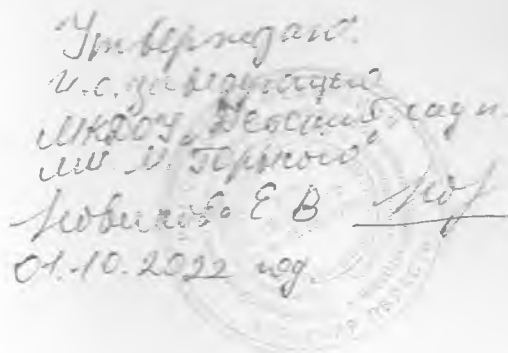 Утверждаю:
И.о. заведующей
МКДОУ "Детский сад п.
им. М. Горького"
Новикова Е В
01.10.2022 год.